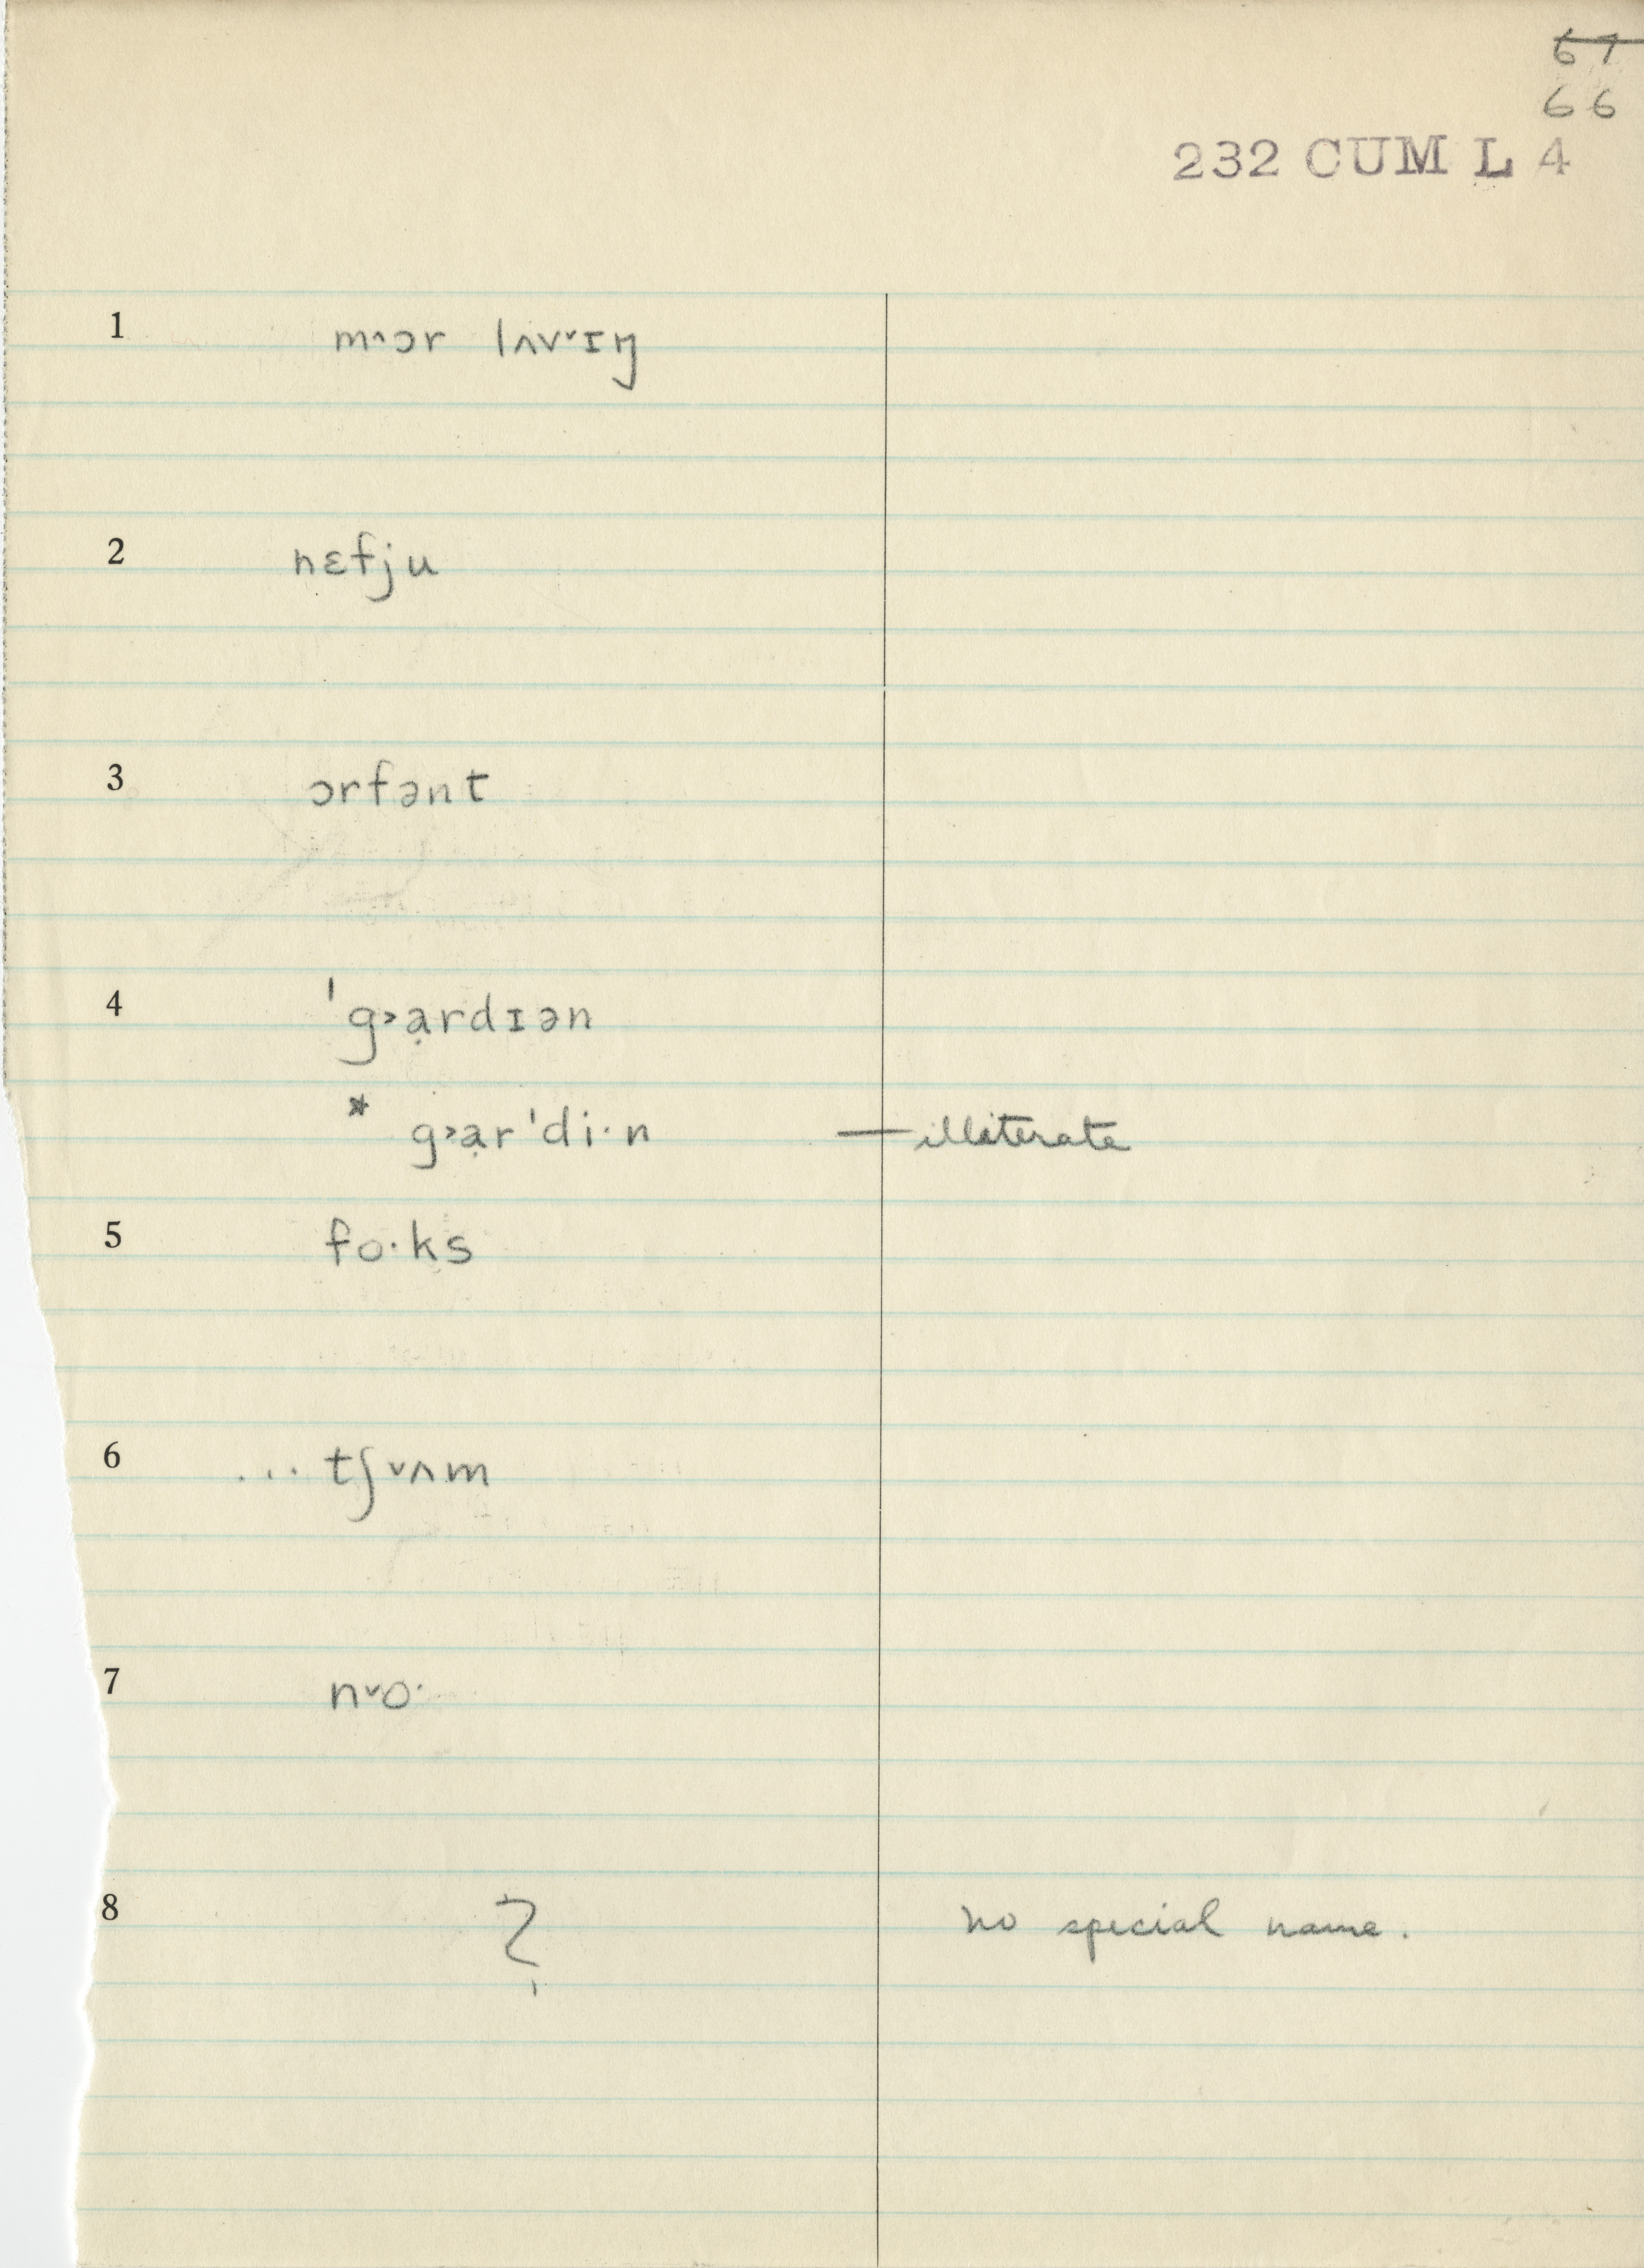 67
66
232 CUM L 4
1 m˄ɔr lʌv˅ɪŋ
2 nɛfju
3 ɔrfənt
4 ˈg˃ạrdɪən
* g˃ạrˈdi·n — illiterate
5 fo·ks
6 ... tʃ˅ʌm
7 n˅o·
8 ? no special name.